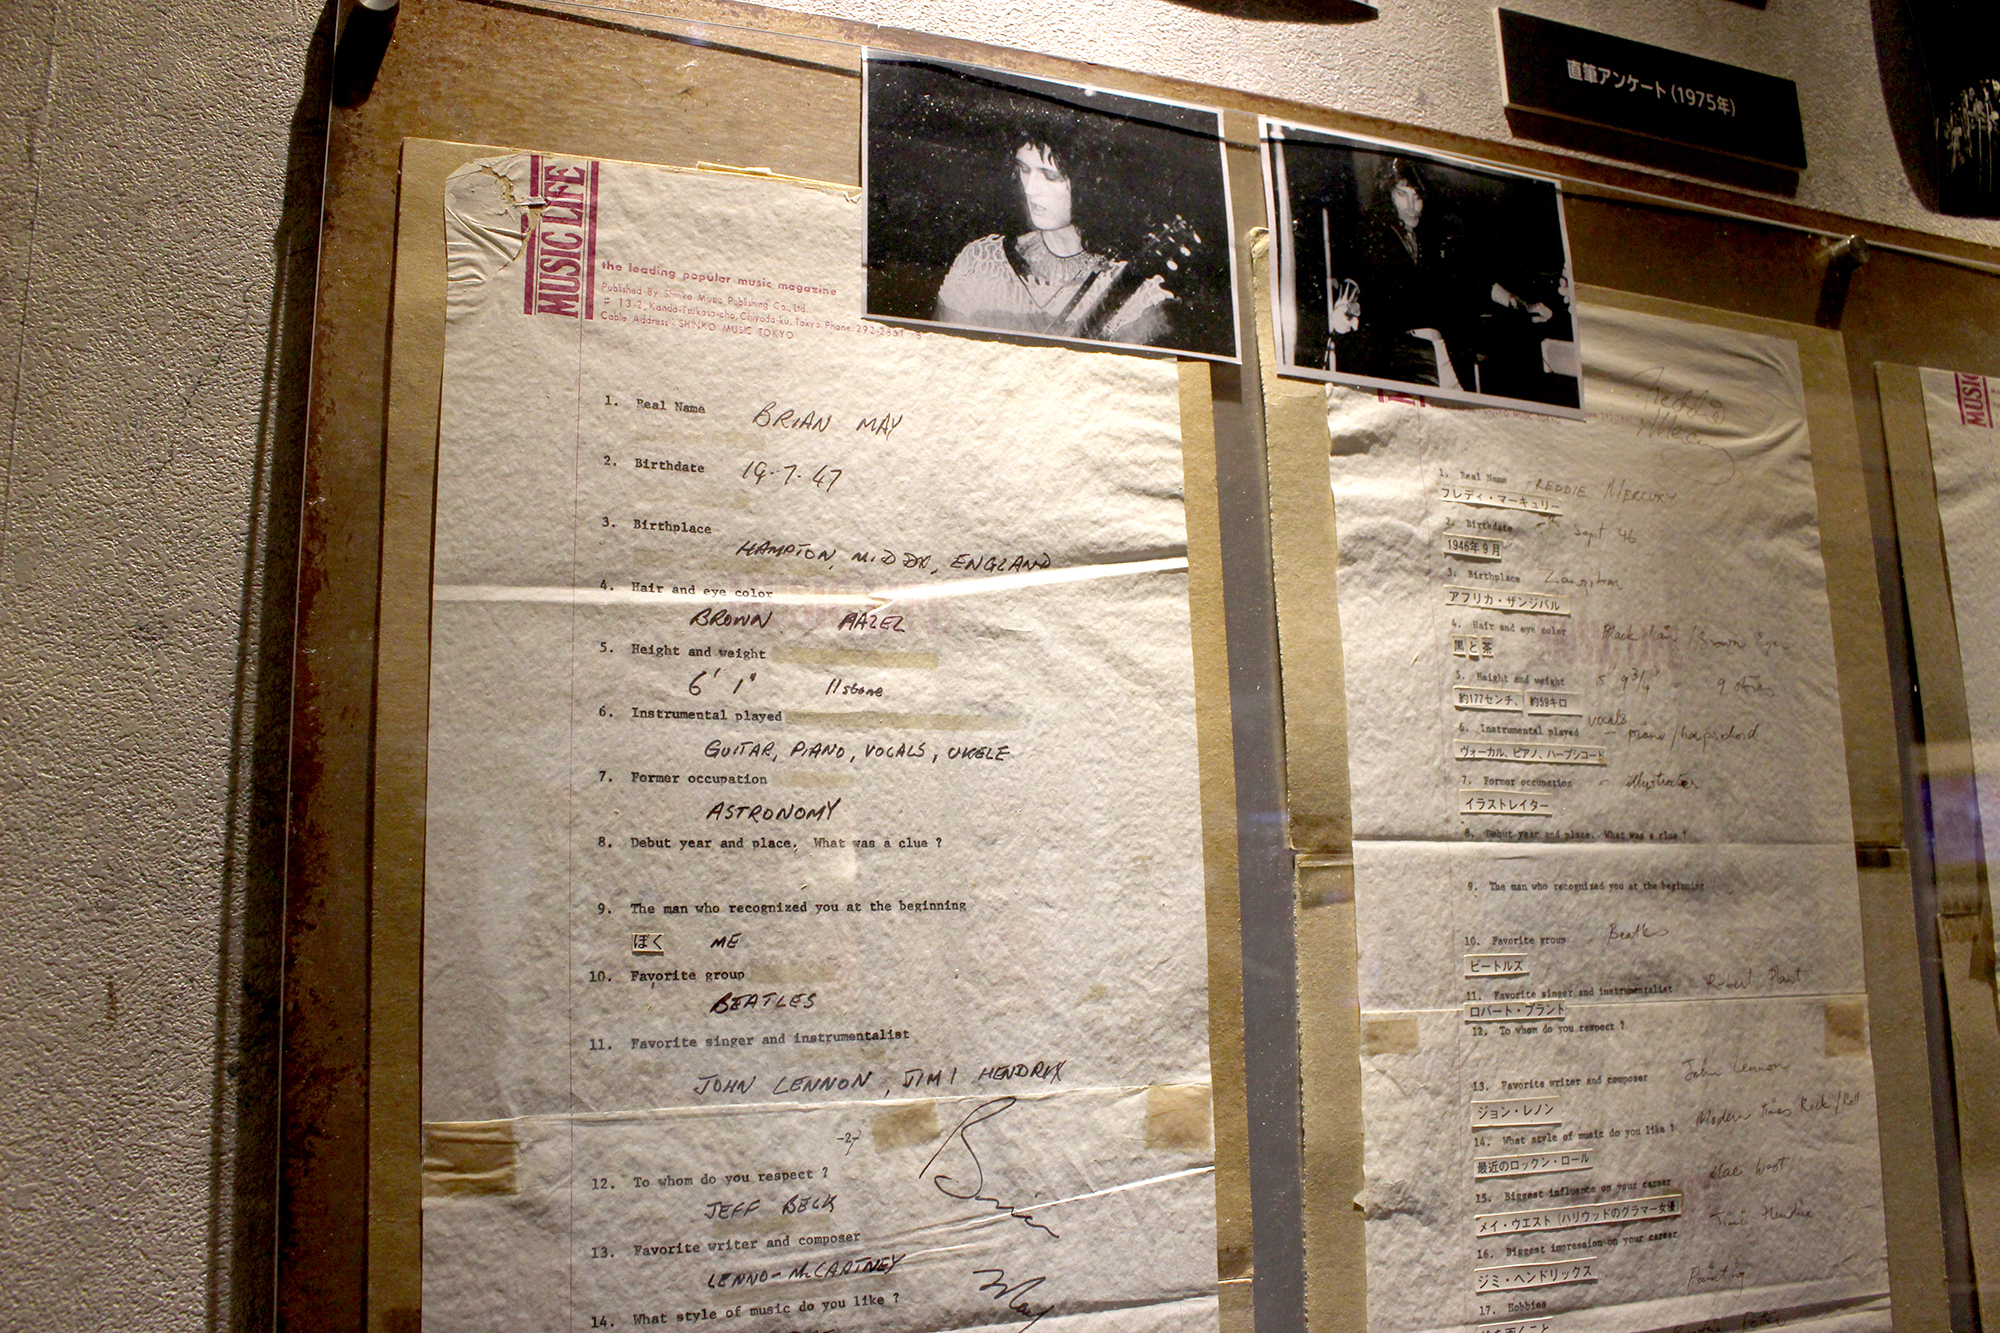 直筆アンケート(1975年)
MUSIC LIFE
the leading popular music magazine
Published By Shinko Music Publishing Co., Ltd.
# 13-2, Kanda-Tsukasa-cho, Chiyoda-ku, Tokyo Phone. 292-2861
Cable Address - SHINKO MUSIC TOKYO
1. Real Name BRIAN MAY
2. Birthdate 19-7-47
3. Birthplace
HAMPTON, MIDDX, ENGLAND
4. Hair and eye color
BROWN HAZEL
5. Height and weight
6' 1" 11 stone
6. Instrumental played
GUITAR, PIANO, VOCALS, UKELE
7. Former occupation
ASTRONOMY
8. Debut year and place. What was a clue ?
9. The man who recognized you at the beginning
ぼく ME
10. Favorite group
BEATLES
11. Favorite singer and instrumentalist
JOHN LENNON, JIMI HENDRIX
-2-
Brian
May
12. To whom do you respect ?
JEFF BECK
13. Favorite writer and composer
LENNO-McCARTNEY
14. What style of music do you like ?
Freddie
Mercury
1. Real Name FREDDIE MERCURY
フレディ・マーキュリー
2. Birthdate 5th Sept 46
1946年9月
3. Birthplace Zanzibar
アフリカ・ザンジバル
4. Hair and eye color Black hair / Brown Eyes
黒と茶
5. Height and weight 5 9 3/4" - 9 stones
約177センチ、約59キロ
6. Instrumental played vocals - piano/harpsichord
ヴォーカル、ピアノ、ハープシコード
7. Former occupation - illustrator
イラストレイター
8. Debut year and place. What was a clue ?
9. The man who recognized you at the beginning
10. Favorite group Beatles
ビートルズ
11. Favorite singer and instrumentalist Robert Plant
ロバート・プラント
12. To whom do you respect ?
13. Favorite writer and composer John Lennon
ジョン・レノン
14. What style of music do you like ? Modern times Rock/Roll
最近のロックン・ロール
15. Biggest influence on your career Mae West
メイ・ウエスト(ハリウッドのグラマー女優
16. Biggest impression on your career Jimi Hendrix
ジミ・ヘンドリックス
17. Hobbies Painting
MUSIC